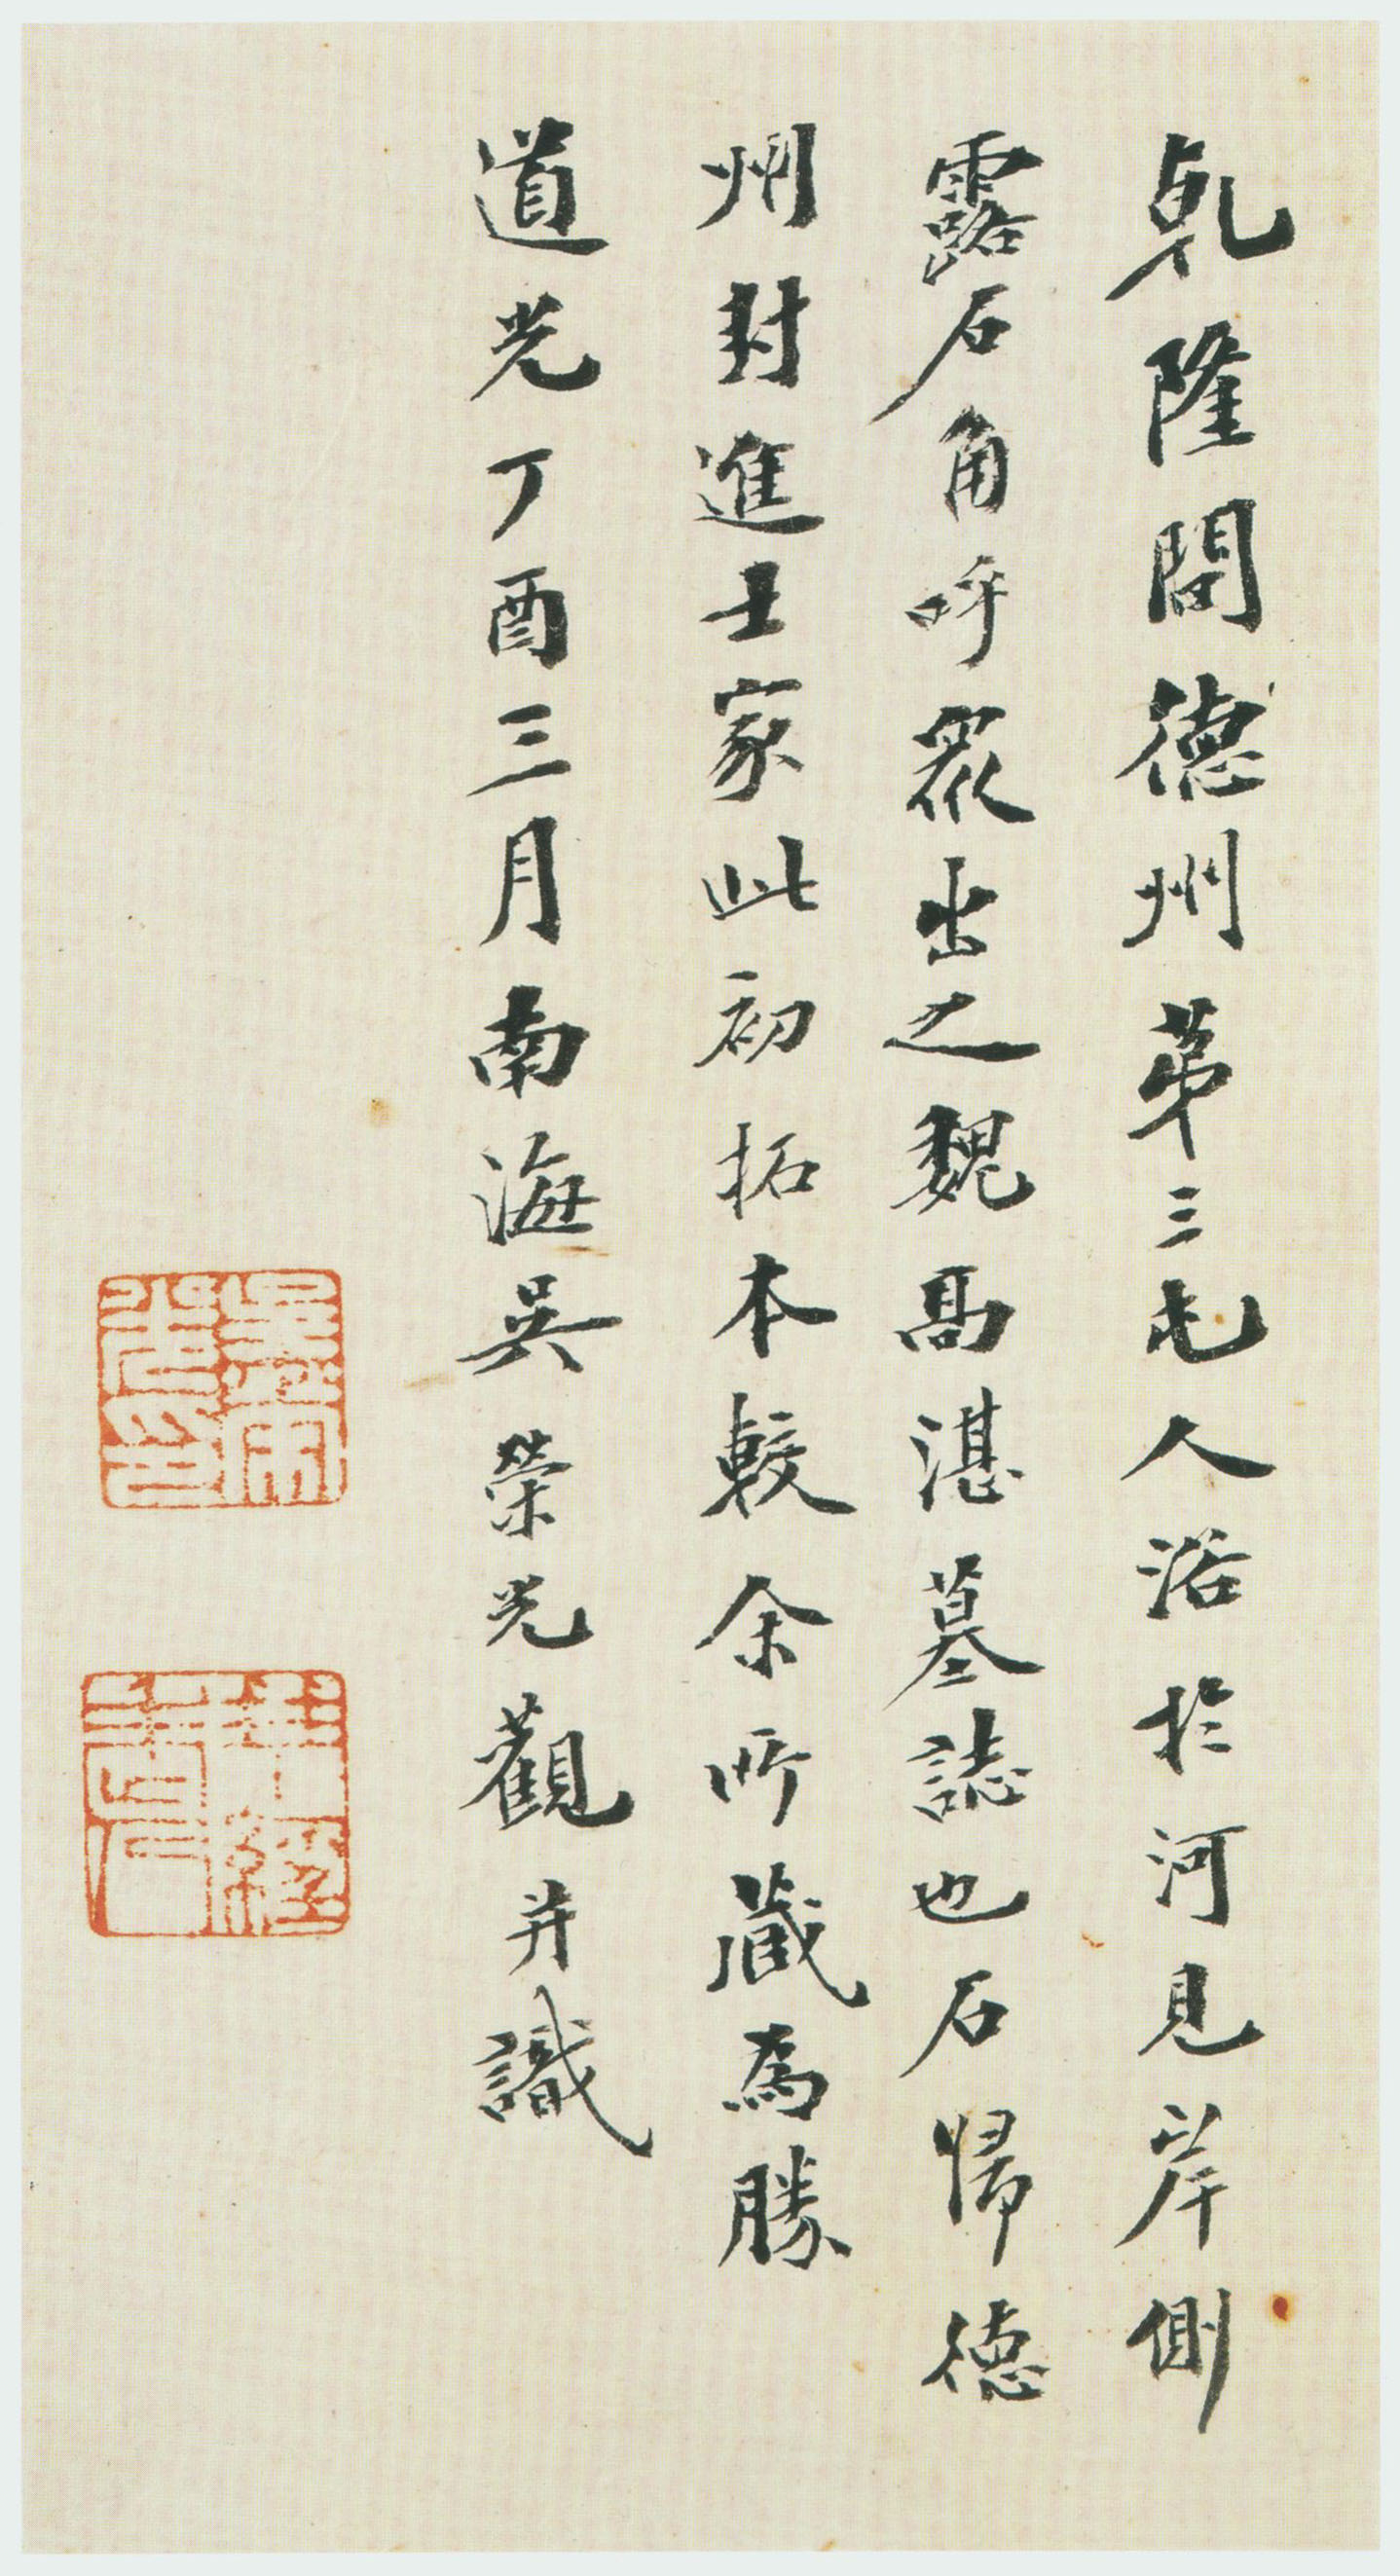 乹隆間德州苐三屯人浴於河見岸側
露石角呼眾出之魏高湛墓誌也石歸德
州封進士家此初拓本較余所藏為勝
道光丁酉三月南海吳榮光觀并識
吳榮光印